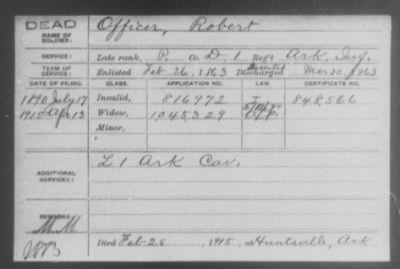 DEAD
Officer, Robert
NAME OF
SOLDIER:
SERVICE: Late rank, P. Co. D, 1 Reg't Ark. Inf.
TERM OF
SERVICE: Enlisted Feb 26, 1863 Deserted Discharged Mar 20, 1863
DATE OF FILING. CLASS. APPLICATION NO. LAW. CERTIFICATE NO.
1890 July 17 Invalid, 816972 848,566
1915 Apr 13 Widow, 1,045,329
Minor,
ADDITIONAL
SERVICES: L 1 Ark Cav.
REMARKS:
MM
Died Feb 25, 1915, at Huntsville, Ark